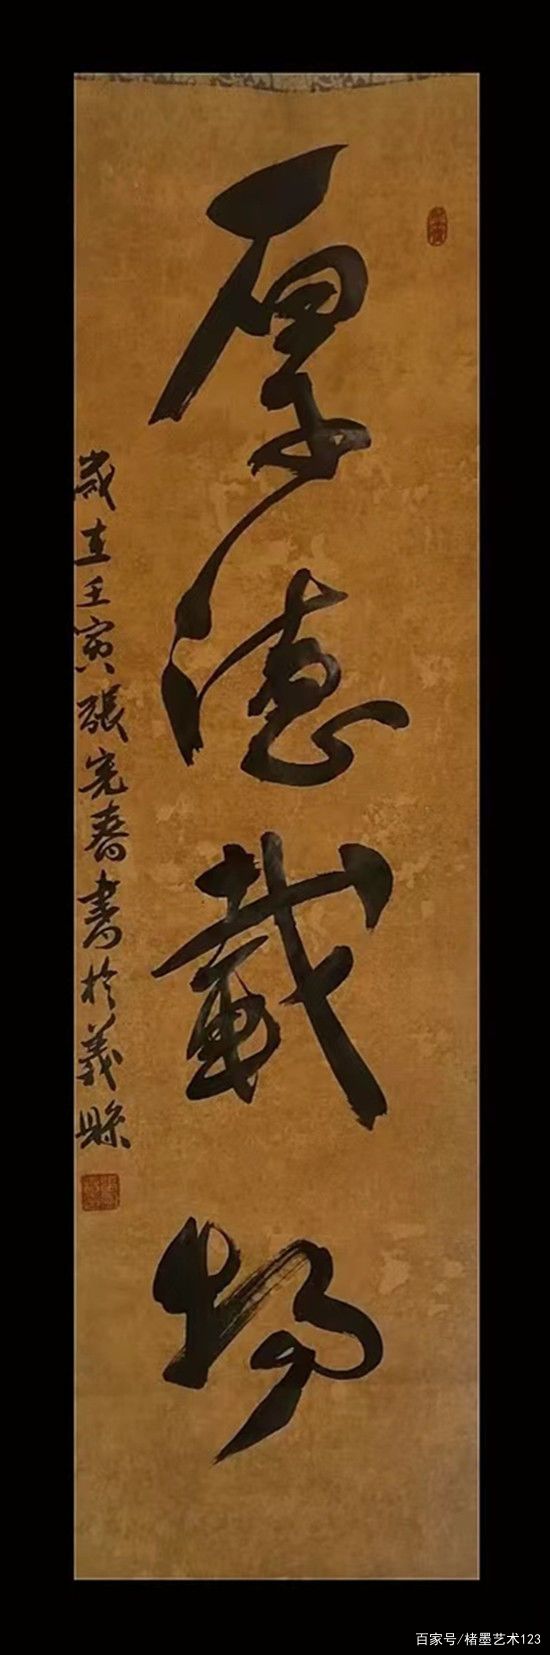 厚德载物
歲在壬寅張憲春書於義縣
百家号/楮墨艺术123